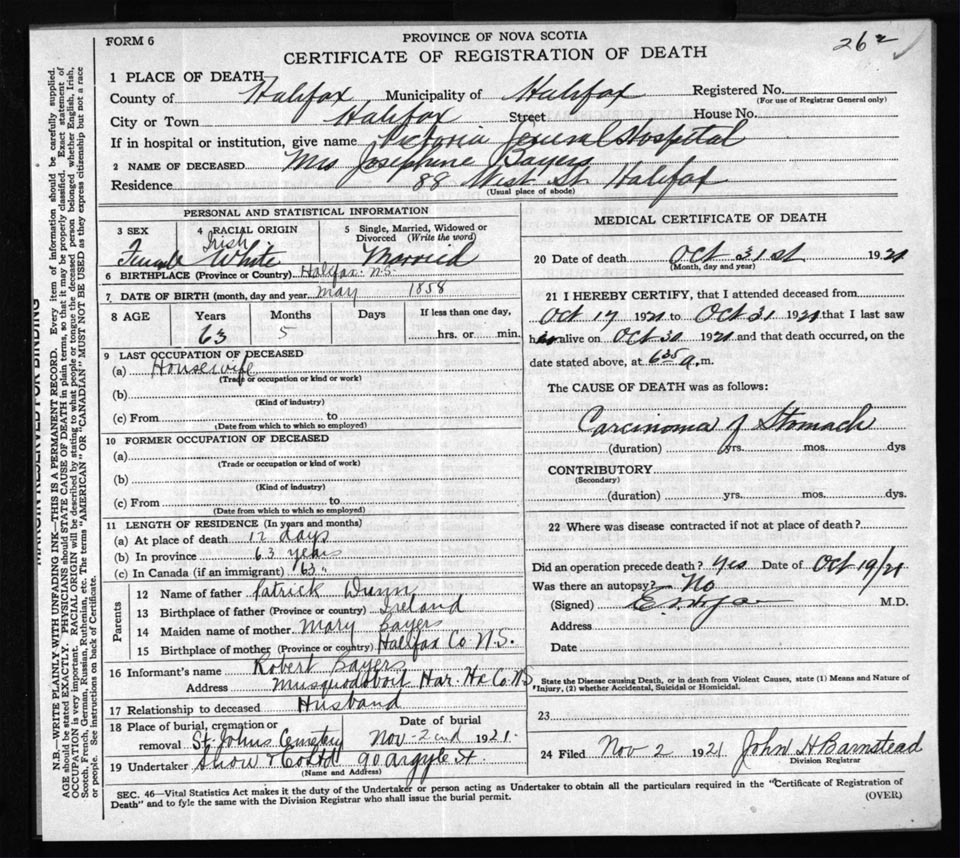 FORM 6
PROVINCE OF NOVA SCOTIA
262
CERTIFICATE OF REGISTRATION OF DEATH
1 PLACE OF DEATH
County of Halifax Municipality of Halifax Registered No.
(For use of Registrar General only)
City or Town Halifax Street House No.
If in hospital or institution, give name Victoria Jeneral Hospital
2 NAME OF DECEASED Mrs Josephine Bayers
Residence 88 West St. Halifax
(Usual place of abode)
PERSONAL AND STATISTICAL INFORMATION
3 SEX 4 RACIAL ORIGIN 5 Single, Married, Widowed or Divorced (Write the word)
Female Irish White Married
6 BIRTHPLACE (Province or Country) Halifax. N.S.
7 DATE OF BIRTH (month, day and year) May 1858
8 AGE Years Months Days If less than one day,
63 5 hrs. or min.
9 LAST OCCUPATION OF DECEASED
(a) Housewife
(Trade or occupation or kind or work)
(b)
(Kind of industry)
(c) From to
(Date from which to which so employed)
10 FORMER OCCUPATION OF DECEASED
(a)
(Trade or occupation or kind of work)
(b)
(Kind of industry)
(c) From to
(Date from which to which so employed)
11 LENGTH OF RESIDENCE (In years and months)
(a) At place of death 12 days
(b) In province 63 years
(c) In Canada (if an immigrant) 63 "
Parents
12 Name of father Patrick Dunn
13 Birthplace of father (Province or country) Ireland
14 Maiden name of mother Mary Bayers
15 Birthplace of mother (Province or country) Halifax Co N.S.
16 Informant's name Robert Bayers
Address Musquodoboit Har. Hx Co. NS
17 Relationship to deceased Husband
18 Place of burial, cremation or Date of burial
removal St. Johns Cemetery Nov - 2nd 1921.
19 Undertaker Snow & Co Ltd 90 Argyle St.
(Name and Address)
MEDICAL CERTIFICATE OF DEATH
20 Date of death Oct 31st 1921
(Month, day and year)
21 I HEREBY CERTIFY, that I attended deceased from
Oct 17 1921 to Oct 31 1921 that I last saw
h alive on Oct 30 1921 and that death occurred, on the
date stated above, at 6 35 a.m.
The CAUSE OF DEATH was as follows:
Carcinoma of Stomach
(duration) yrs. mos. dys
CONTRIBUTORY
(Secondary)
(duration) yrs. mos. dys.
22 Where was disease contracted if not at place of death?
Did an operation precede death? Yes Date of Oct 19/21
Was there an autopsy? No
(Signed) M.D.
Address
Date
State the Disease causing Death, or in death from Violent Causes, state (1) Means and Nature of
Injury, (2) whether Accidental, Suicidal or Homicidal.
23
24 Filed Nov 2 1921 John H Barnstead
Division Registrar
SEC. 46—Vital Statistics Act makes it the duty of the Undertaker or person acting as Undertaker to obtain all the particulars required in the "Certificate of Registration of
Death" and to fyle the same with the Division Registrar who shall issue the burial permit.
(OVER)
MARGIN RESERVED FOR BINDING
N.B.—WRITE PLAINLY WITH UNFADING INK—THIS IS A PERMANENT RECORD. Every item of information should be carefully supplied.
AGE should be stated EXACTLY. PHYSICIANS should STATE CAUSE OF DEATH in plain terms, so that it may be properly classified. Exact statement of
OCCUPATION is very important. RACIAL ORIGIN will be described by stating to what people or tongue the deceased person belonged whether English, Irish,
Scotch, French, German, Russian, Ruthenian, etc. The terms "AMERICAN" OR "CANADIAN" MUST NOT BE USED as they express citizenship but not a race
or people. See instructions on back of Certificate.